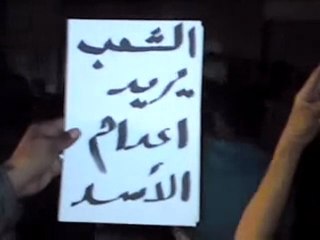 الشعب
يريد
اعدام
الأسد